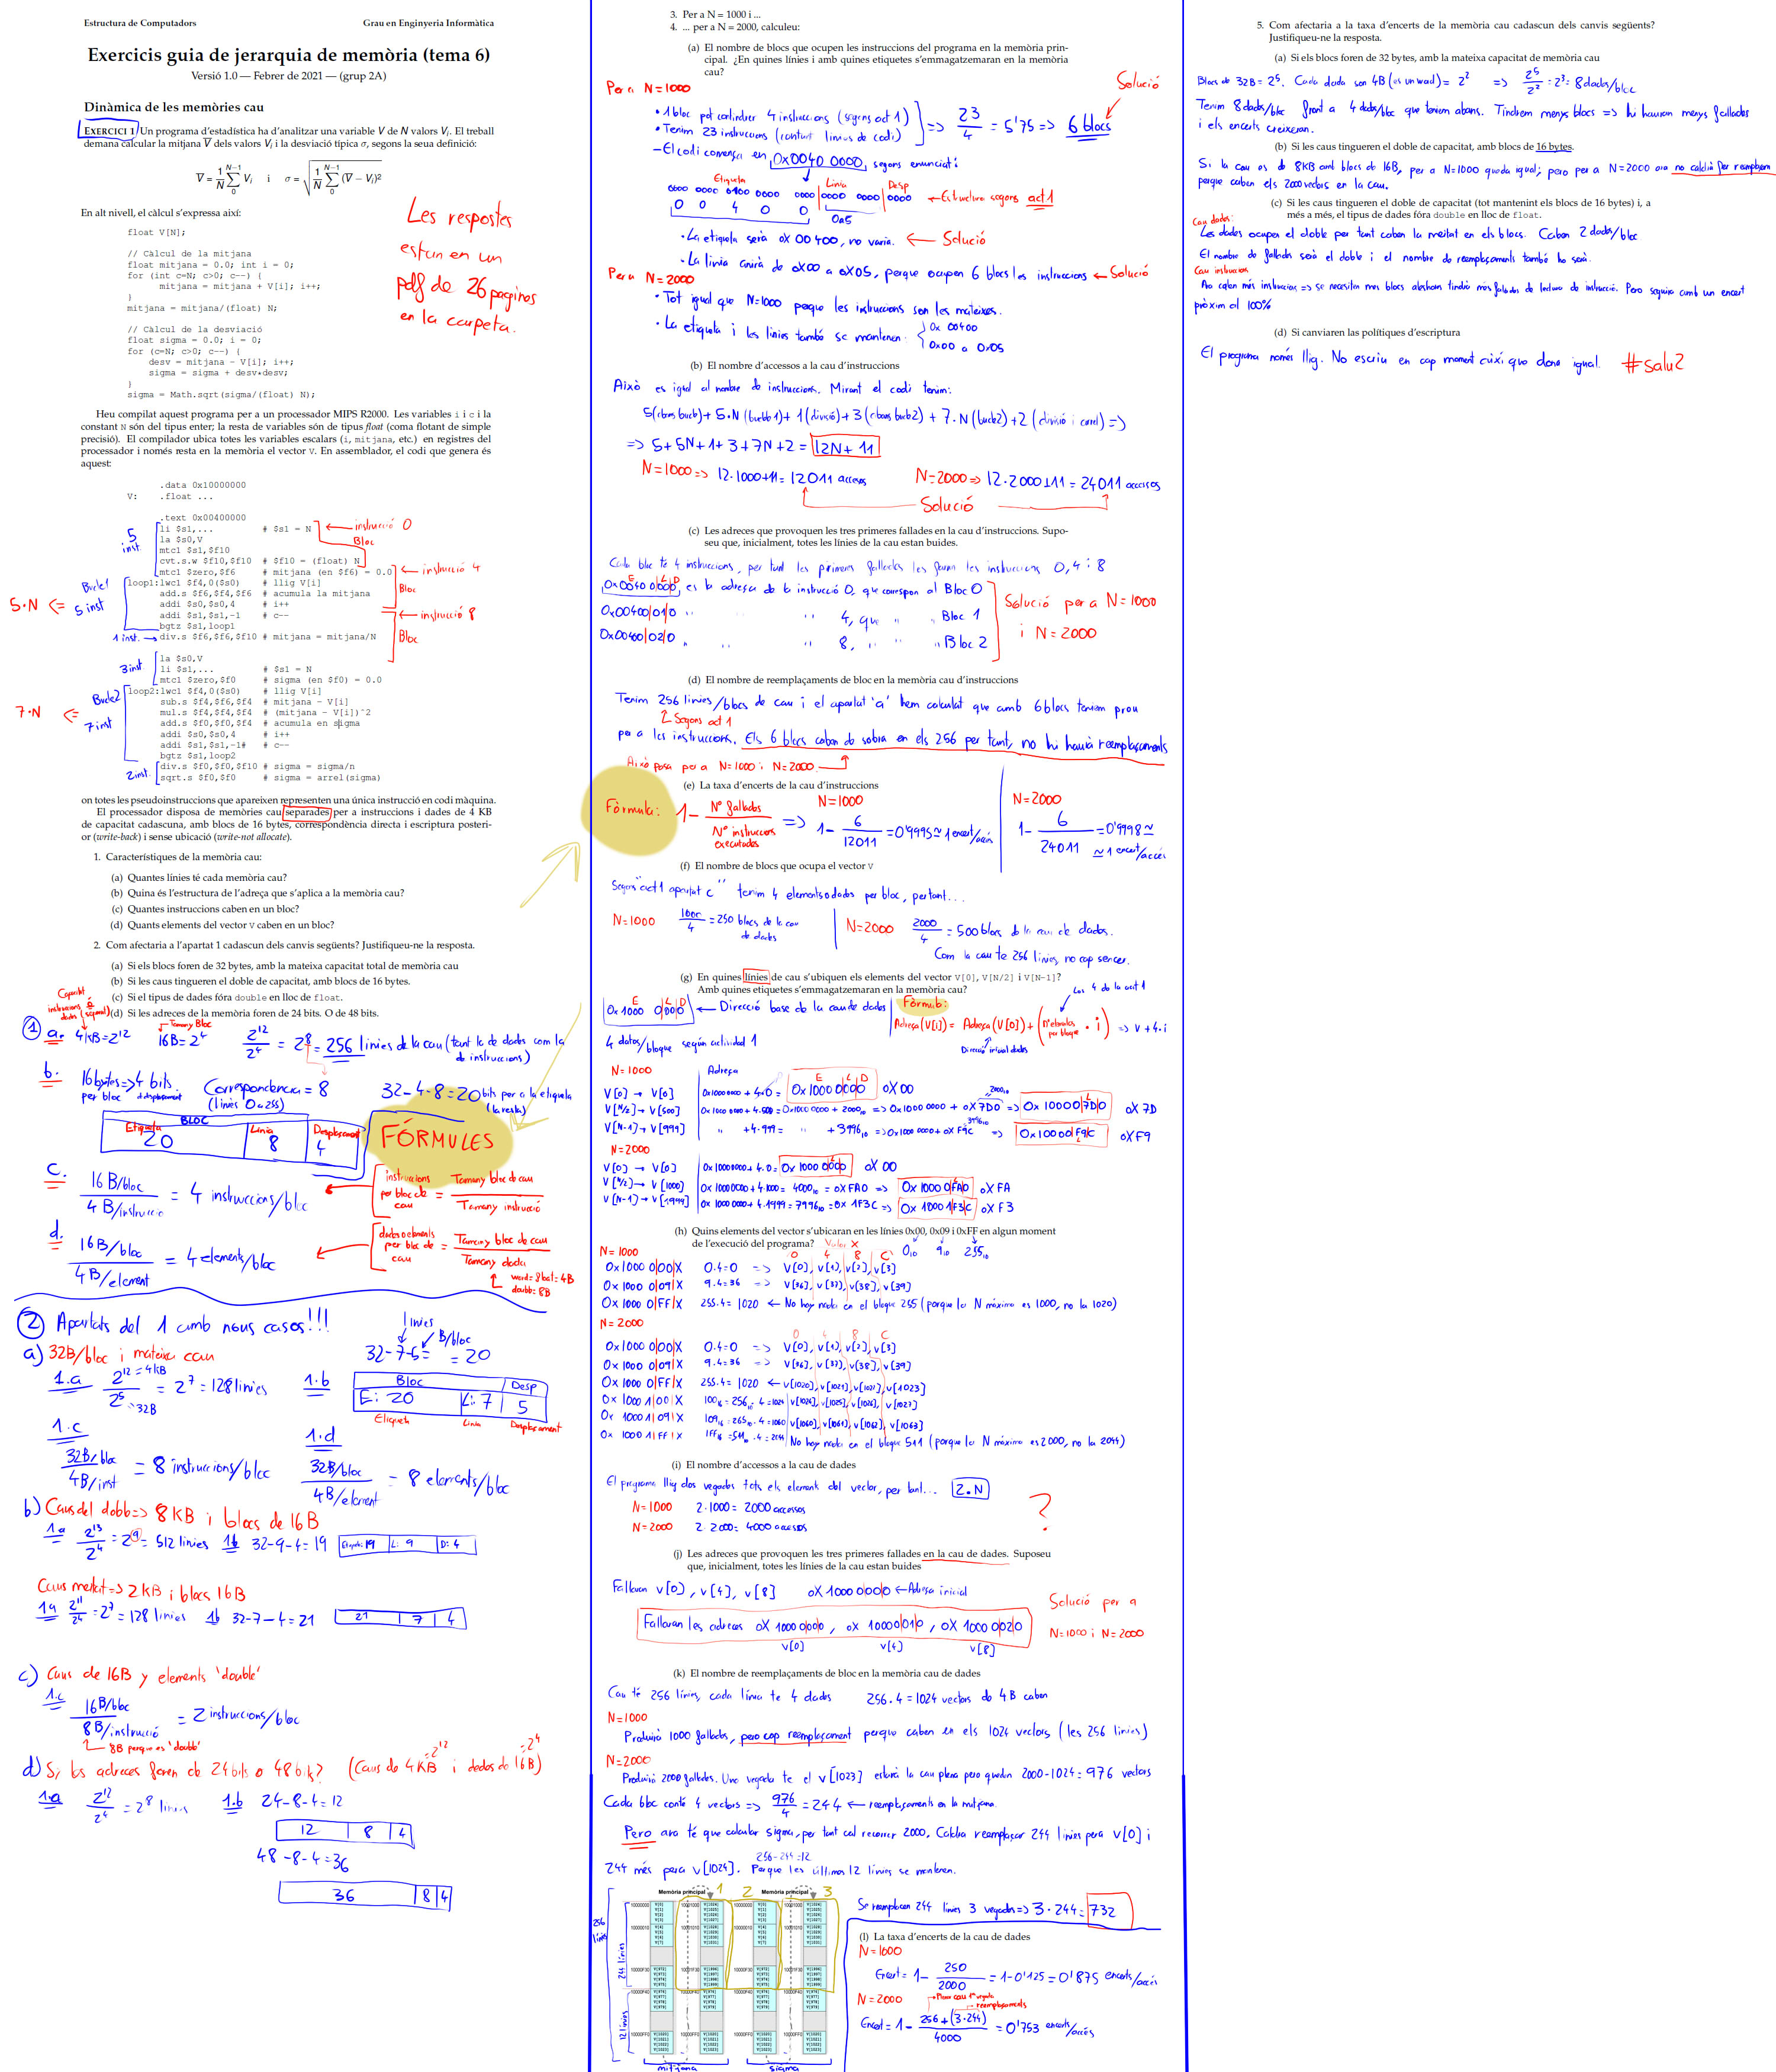 Estructura de Computadors
Grau en Enginyeria Informàtica
Exercicis guia de jerarquia de memòria (tema 6)
Versió 1.0 — Febrer de 2021 — (grup 2A)
Dinàmica de les memòries cau
EXERCICI 1 Un programa d'estadística ha d'analitzar una variable V de N valors Vi. El treball
demana calcular la mitjana V dels valors Vi i la desviació típica σ, segons la seua definició:
En alt nivell, el càlcul s'expressa així:
float V[N];
// Càlcul de la mitjana
float mitjana = 0.0; int i = 0;
for (int c=N; c>0; c--) {
mitjana = mitjana + V[i]; i++;
}
mitjana = mitjana/(float) N;
// Càlcul de la desviació
float sigma = 0.0; i = 0;
for (c=N; c>0; c--) {
desv = mitjana - V[i]; i++;
sigma = sigma + desv*desv;
}
sigma = Math.sqrt(sigma/(float) N);
Les respostes
estan en un
pdf de 26 pagines
en la carpeta.
Heu compilat aquest programa per a un processador MIPS R2000. Les variables i i c i la
constant N són del tipus enter; la resta de variables són de tipus float (coma flotant de simple
precisió). El compilador ubica totes les variables escalars (i, mitjana, etc.) en registres del
processador i només resta en la memòria el vector V. En assemblador, el codi que genera és
aquest:
.data 0x10000000
V: .float ...
.text 0x00400000
li $s1,... # $s1 = N
la $s0,V
mtc1 $s1,$f10
cvt.s.w $f10,$f10 # $f10 = (float) N
mtc1 $zero,$f6 # mitjana (en $f6) = 0.0
loop1:lwc1 $f4,0($s0) # llig V[i]
add.s $f6,$f4,$f6 # acumula la mitjana
addi $s0,$s0,4 # i++
addi $s1,$s1,-1 # c--
bgtz $s1,loop1
div.s $f6,$f6,$f10 # mitjana = mitjana/N
la $s0,V
li $s1,... # $s1 = N
mtc1 $zero,$f0 # sigma (en $f0) = 0.0
loop2:lwc1 $f4,0($s0) # llig V[i]
sub.s $f4,$f6,$f4 # mitjana - V[i]
mul.s $f4,$f4,$f4 # (mitjana - V[i])^2
add.s $f0,$f0,$f4 # acumula en sigma
addi $s0,$s0,4 # i++
addi $s1,$s1,-1# # c--
bgtz $s1,loop2
div.s $f0,$f0,$f10 # sigma = sigma/n
sqrt.s $f0,$f0 # sigma = arrel(sigma)
5 inst.
instrucció 0
Bloc
instrucció 4
Bloc
instrucció 8
Bloc
5·N <= Bucle1 5 inst
1 inst.
3 inst
7·N <= Bucle2 7 inst
2 inst.
on totes les pseudoinstruccions que apareixen representen una única instrucció en codi màquina.
El processador disposa de memòries cau separades per a instruccions i dades de 4 KB
de capacitat cadascuna, amb blocs de 16 bytes, correspondència directa i escriptura posteri-
or (write-back) i sense ubicació (write-not allocate).
1. Característiques de la memòria cau:
(a) Quantes línies té cada memòria cau?
(b) Quina és l'estructura de l'adreça que s'aplica a la memòria cau?
(c) Quantes instruccions caben en un bloc?
(d) Quants elements del vector V caben en un bloc?
2. Com afectaria a l'apartat 1 cadascun dels canvis següents? Justifiqueu-ne la resposta.
(a) Si els blocs foren de 32 bytes, amb la mateixa capacitat total de memòria cau
(b) Si les caus tingueren el doble de capacitat, amb blocs de 16 bytes.
(c) Si el tipus de dades fóra double en lloc de float.
(d) Si les adreces de la memòria foren de 24 bits. O de 48 bits.
Capacitat instruccions o dades (igual)
Tamany Bloc
1 a. 4kB=2^12 16B=2^4 2^12/2^4 = 2^8 = 256 linies de la cau (tant la de dades com la de instruccions)
b. 16 bytes=>4 bits. per bloc desplaçament Correspondencia = 8 (linies 0 a 255) 32-4-8=20 bits per a la etiqueta (la resta)
BLOC
Etiqueta Linia Desplaçament
20 8 4
FÓRMULES
c. 16 B/bloc / 4 B/instrucció = 4 instruccions/bloc
instruccions per bloc de cau = Tamany bloc de cau / Tamany instrucció
d. 16 B/bloc / 4 B/element = 4 elements/bloc
dades o elements per bloc de cau = Tamany bloc de cau / Tamany dada
2 Apartats del 1 amb nous casos!!!
a) 32B/bloc i mateixa cau
linies B/bloc
32-7-5= =20
1.a 2^12=4kB / 2^5=32B = 2^7 = 128 linies
1.b Bloc Desp
E: 20 L: 7 5
Etiqueta Linia Desplaçament
1.c 32B/bloc / 4B/inst = 8 instruccions/bloc
1.d 32B/bloc / 4B/element = 8 elements/bloc
b) Caus del doble=> 8 KB i blocs de 16B
1a 2^13/2^4 = 2^9 = 512 linies 1b 32-9-4=19 Etiqueta: 19 L: 9 D: 4
Caus meitat=> 2 KB i blocs 16B
1a 2^11/2^4 = 2^7 = 128 linies 1b 32-7-4=21 21 7 4
c) Caus de 16B y elements 'double'
1.c 16B/bloc / 8B/instrucció = 2 instruccions/bloc
8B perque es 'double'
d) Si les adreces foren de 24 bits o 48 bits? (Caus de 4KB=2^12 i dades de 16B=2^4)
1.a 2^12/2^4 = 2^8 linies 1.b 24-8-4=12
12 8 4
48-8-4=36
36 8 4
3. Per a N = 1000 i ...
4. ... per a N = 2000, calculeu:
(a) El nombre de blocs que ocupen les instruccions del programa en la memòria prin-
cipal. ¿En quines línies i amb quines etiquetes s'emmagatzemaran en la memòria
cau?
Per a N=1000
Solució
• 1 bloc pot contindre 4 instruccions (segons act 1)
• Tenim 23 instruccions (contant linies de codi)
=> 23/4 = 5'75 => 6 blocs
- El codi comença en 0x0040 0000, segons enunciat:
Etiqueta Linia Desp
0000 0000 0100 0000 0000 0000 0000 0000 ← Estructura segons act 1
0 0 4 0 0 0 a 5
• La etiqueta serà 0X 00400, no varia. ← Solució
• La linia anirà de 0X00 a 0X05, perque ocupen 6 blocs les instruccions ← Solució
Per a N=2000
• Tot igual que N=1000 perque les instruccions son les mateixes.
• La etiqueta i les linies també se mantenen: 0x 00400
0x00 a 0x05
(b) El nombre d'accessos a la cau d'instruccions
Això es igual al nombre de instruccions. Mirant el codi tenim:
5(abans bucle)+ 5·N (bucle 1)+ 1(divisió)+3 (abans bucle2) + 7·N (bucle2)+2 (divisió i arrel) =>
=> 5+5N+1+3+7N+2 = 12N+11
N=1000 => 12·1000+11= 12011 accesos N=2000 => 12·2000+11= 24011 accesos
Solució
(c) Les adreces que provoquen les tres primeres fallades en la cau d'instruccions. Supo-
seu que, inicialment, totes les línies de la cau estan buides.
Cada bloc té 4 instruccions, per tant les primeres fallades les faran les instruccions 0, 4 i 8
E L D
0x00400000, es la adresa de la instrucció 0, que correspon al Bloc 0
0x00400|01|0 " " 4, que " Bloc 1
0x00400|02|0 " " 8, " " Bloc 2
Solució per a N=1000
i N=2000
(d) El nombre de reemplaçaments de bloc en la memòria cau d'instruccions
Tenim 256 linies/blocs de cau i el apartat 'a' hem calculat que amb 6 blocs teniem prou
Segons act 1
per a les instruccions. Els 6 blocs caben de sobra en els 256 per tant, no hi haurà reemplaçaments
Això passa per a N=1000 i N=2000.
(e) La taxa d'encerts de la cau d'instruccions
Fòrmula: 1- Nº fallades / Nº instruccions executades =>
N=1000
1- 6/12011 =0'9995≈1 encert/accés
N=2000
1- 6/24011 =0'9998≈
≈1 encert/accés
(f) El nombre de blocs que ocupa el vector V
Segons "act 1 apartat c" tenim 4 elements o dades per bloc, per tant...
N=1000 1000/4 =250 blocs de la cau de dades
N=2000 2000/4 =500 blocs de la cau de dades.
Com la cau te 256 linies, no cap sencer.
(g) En quines línies de cau s'ubiquen els elements del vector V[0], V[N/2] i V[N-1]?
Amb quines etiquetes s'emmagatzemaran en la memòria cau?
E L D
0x1000 0000 ← Direcció base de la cau de dades
4 datos/bloque según actividad 1
Fòrmula: Los 4 de la act 1
Adreça(V[i])= Adreça(V[0])+(Nº elements per bloque · i) => V+4·i
Direcció inicial dades
N=1000 Adreça
V[0] → V[0] 0x10000000 + 4·0= 0x1000 0000 0X00
V[N/2] → V[500] 0x1000 0000 + 4·500=0x1000 0000 + 2000₁₀ => 0x1000 0000 + 0x7D0 => 0x10000|7D|0 0X 7D
V[N-1] → V[999] " +4·999= " +3996₁₀ =>0x1000 0000+ 0xF9C => 0x10000|F9|C 0XF9
N=2000
V[0] → V[0] 0x10000000 + 4·0= 0x1000 0000 0X 00
V[N/2] → V[1000] 0x10000000 + 4·1000= 4000₁₀ =0xFA0 => 0x1000 0FA0 0X FA
V[N-1] → V[1999] 0x10000000 + 4·1999=7996₁₀=0x 1F3C => 0x 1000 1F3C 0X F3
(h) Quins elements del vector s'ubicaran en les línies 0x00, 0x09 i 0xFF en algun moment
de l'execució del programa?
Valor X
0₁₀ 9₁₀ 255₁₀
N=1000
0 4 8 C
0x1000 0|00|X 0·4=0 => V[0], V[1], V[2], V[3]
0x1000 0|09|X 9·4=36 => V[36], V[37], V[38], V[39]
0x1000 0|FF|X 255·4= 1020 ← No hay nada en el bloque 255 (porque la N máxima es 1000, no la 1020)
N=2000
0 4 8 C
0x1000 0|00|X 0·4=0 => V[0], V[1], V[2], V[3]
0x1000 0|09|X 9·4=36 => V[36], V[37], V[38], V[39]
0x1000 0|FF|X 255·4= 1020 ← V[1020], V[1021], V[1022], V[1023]
0x 1000 1|00|X 100₁₆=256₁₀·4=1024 V[1024], V[1025], V[1026], V[1027]
0x 1000 1|09|X 109₁₆=265₁₀·4=1060 V[1060], V[1061], V[1062], V[1063]
0x 1000 1|FF|X 1FF₁₆=511₁₀·4=2044 No hay nada en el bloque 511 (porque la N máxima es 2000, no la 2044)
(i) El nombre d'accessos a la cau de dades
El programa llig dos vegades tots els elements del vector, per tant... 2·N
N=1000 2·1000= 2000 accessos
N=2000 2·2000= 4000 accesos
?
(j) Les adreces que provoquen les tres primeres fallades en la cau de dades. Suposeu
que, inicialment, totes les línies de la cau estan buides
Fallaran V[0], V[4], V[8] 0X 1000 0000 ← Adresa inicial
Fallaran les adreces 0X 1000 0000, 0x 10000010, 0X 1000 0020
V[0] V[4] V[8]
Solució per a
N=1000 i N=2000
(k) El nombre de reemplaçaments de bloc en la memòria cau de dades
Cau té 256 línies, cada línia te 4 dades 256·4=1024 vectors de 4B caben
N=1000
Produirà 1000 fallades, pero cap reemplaçament perque caben en els 1024 vectors (les 256 linies)
N=2000
Produirà 2000 fallades. Una vegada te el V[1023] estarà la cau plena pero queden 2000-1024=976 vectors
Cada bloc conté 4 vectors => 976/4 = 244 ← reemplaçaments en la mitjana.
Pero ara té que calcular sigma, per tant cal recorrer 2000. Caldrà reemplaçar 244 linies pera V[0] i
256-244=12
244 més pera V[1024]. Perque les últimes 12 linies se mantenen.
Memòria principal 1 2 Memòria principal 3
256 linies
244 linies
12 linies
mitjana sigma
Se reemplacen 244 linies 3 vegades => 3·244= 732
(l) La taxa d'encerts de la cau de dades
N=1000
Encert= 1- 250/2000 =1-0'125=0'875 encerts/accés
N=2000
Plenar cau 1ª vegada
reemplaçaments
Encert= 1- 256+(3·244)/4000 =0'753 encerts/accés
5. Com afectaria a la taxa d'encerts de la memòria cau cadascun dels canvis següents?
Justifiqueu-ne la resposta.
(a) Si els blocs foren de 32 bytes, amb la mateixa capacitat de memòria cau
Blocs de 32B=2^5. Cada dada son 4B (es un word)= 2^2 => 2^5/2^2 =2^3= 8 dades/bloc
Tenim 8 dades/bloc front a 4 dades/bloc que teniem abans. Tindrem menys blocs => hi hauran menys fallades
i els encerts creixeran.
(b) Si les caus tingueren el doble de capacitat, amb blocs de 16 bytes.
Si la cau es de 8KB amb blocs de 16B, per a N=1000 queda igual; pero per a N=2000 ara no caldrà fer reemplaçam
perque caben els 2000 vectors en la cau.
(c) Si les caus tingueren el doble de capacitat (tot mantenint els blocs de 16 bytes) i, a
més a més, el tipus de dades fóra double en lloc de float.
Cau dades:
Les dades ocupen el doble per tant caben la meitat en els blocs. Caben 2 dades/bloc
El nombre de fallades serà el doble i el nombre de reemplaçaments també ho serà.
Cau instruccions
No caben més instruccions => se necesiten mes blocs aleshores tindrà més fallades de lectura de intrucció. Pero seguirà amb un encert
pròxim al 100%
(d) Si canviaren las polítiques d'escriptura
El programa només llig. No escriu en cap moment aixi que dona igual. #salu2